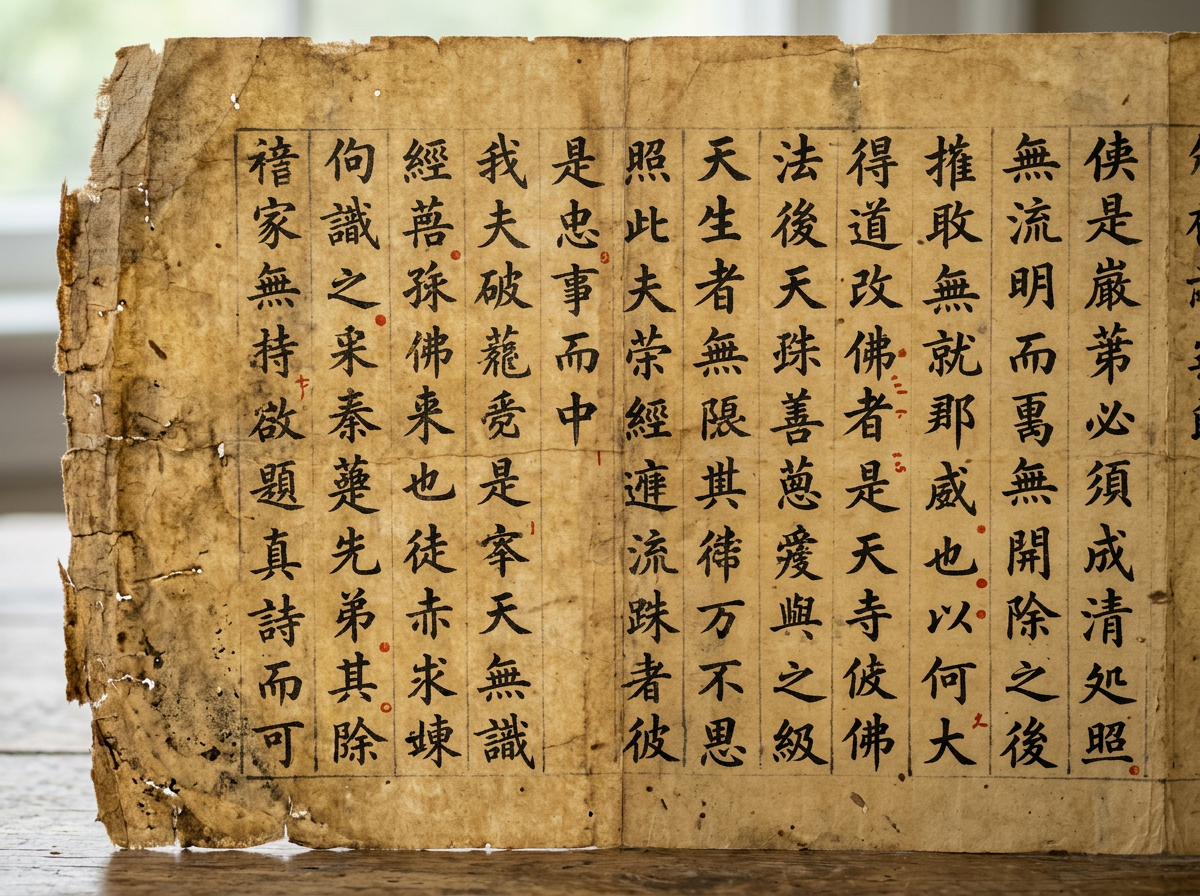 使是嚴苐必須成清処照
無流明而萬無開除之後
摧敢無就那威也以何大
得道改佛者是天寺彼佛
法後天珠善愛與之級
天生者無限其万不思
照此夫荣經流珠者彼
是忠事而中
我夫破是宰天無識
經佛来也徒赤求
識之秦先弟其除
家無持啟題真詩而可